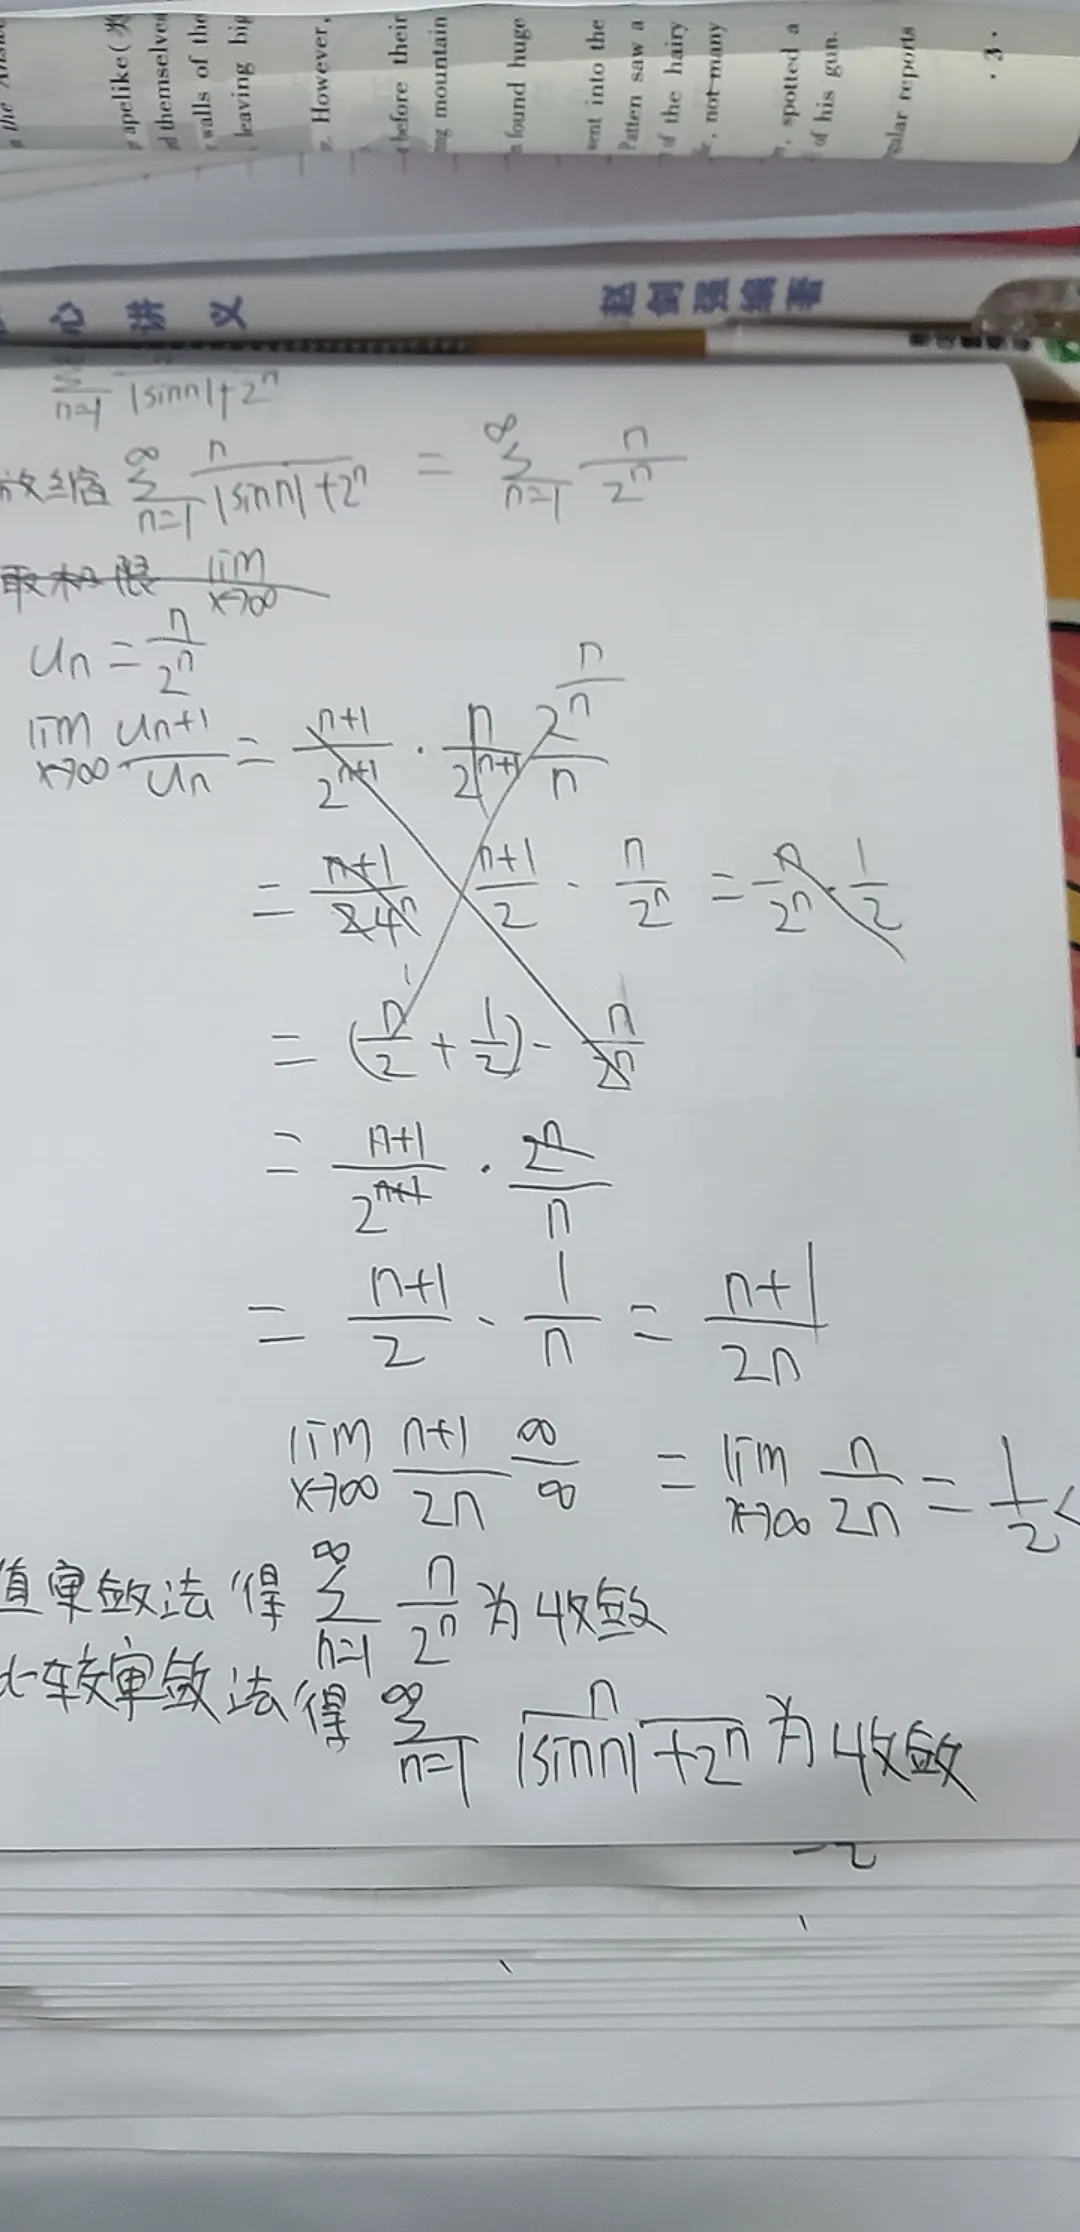 the
apelike (类
themselves
walls of the
leaving big
. However,
before their
mountain
found huge
went into the
Patten saw a
of the hairy
, not many
, spotted a
of his gun.
gular reports
· 3 ·
心讲义 赵剑强编著
∑ n=1 |sinn|+2ⁿ
放缩 ∑_{n=1}^{∞} n/(|sinn|+2ⁿ) = ∑_{n=1}^{∞} n/2ⁿ
取极限 lim x→∞
un = n/2ⁿ
lim x→∞ un+1/un = (n+1)/2ⁿ⁺¹ · n/2ⁿ⁺¹ 2ⁿ/n n/n
= (n+1)/(2·4ⁿ) (n+1)/2 · n/2ⁿ = n/2ⁿ · 1/2
= (n/2 + 1/2) · n/2ⁿ
= (n+1)/2ⁿ⁺¹ · 2ⁿ/n
= (n+1)/2 · 1/n = (n+1)/2n
lim x→∞ (n+1)/2n ∞/∞ = lim x→∞ n/2n = 1/2 <
值审敛法得 ∑_{n=1}^{∞} n/2ⁿ 为收敛
比较审敛法得 ∑_{n=1}^{∞} n/(|sinn|+2ⁿ) 为收敛